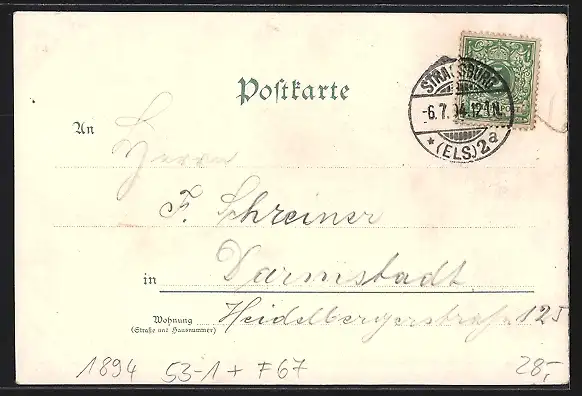 Postkarte
STRASSBURG
-6.7.94.12-1N.
* (ELS) 2a
An
Herrn
F. Schreiner
in Darmstadt
Wohnung Heidelbergerstraße 125
(Straße und Hausnummer)
1894 53-1 + F67 28,-